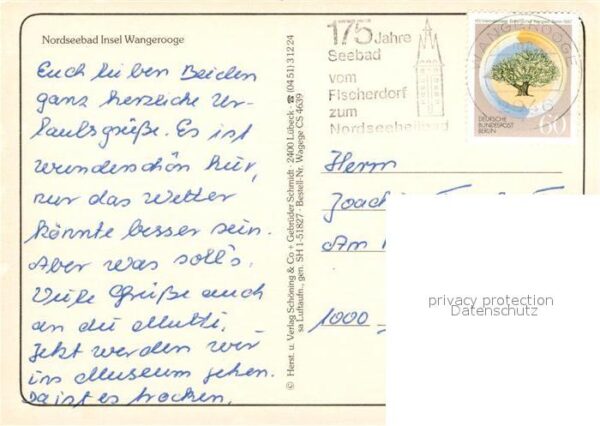 Nordseebad Insel Wangerooge
Euch lieben Beiden
ganz herzliche Ur-
laubsgrüße. Es ist
wunderschön hier,
nur das Wetter
könnte besser sein.
Aber was soll's.
Viele Grüße auch
an die Mutti.
Jetzt werden wir
ins Museum gehen.
Da ist es trocken.
© Herst. u. Verlag Schöning & Co + Gebrüder Schmidt · 2400 Lübeck · ☎ (04 51) 3 12 24
sa Luftaufn., gen. SH 1-51827 · Bestell-Nr. Wagege CS 4639
175 Jahre
Seebad
vom
Fischerdorf
zum
Nordseeheilbad
WANGEROOGE
2946
DEUTSCHE
BUNDESPOST
BERLIN
60
Herrn
Am
1000
privacy protection
Datenschutz